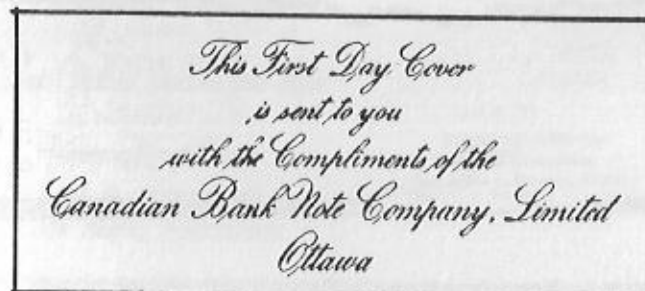 This First Day Cover
is sent to you
with the Compliments of the
Canadian Bank Note Company, Limited
Ottawa